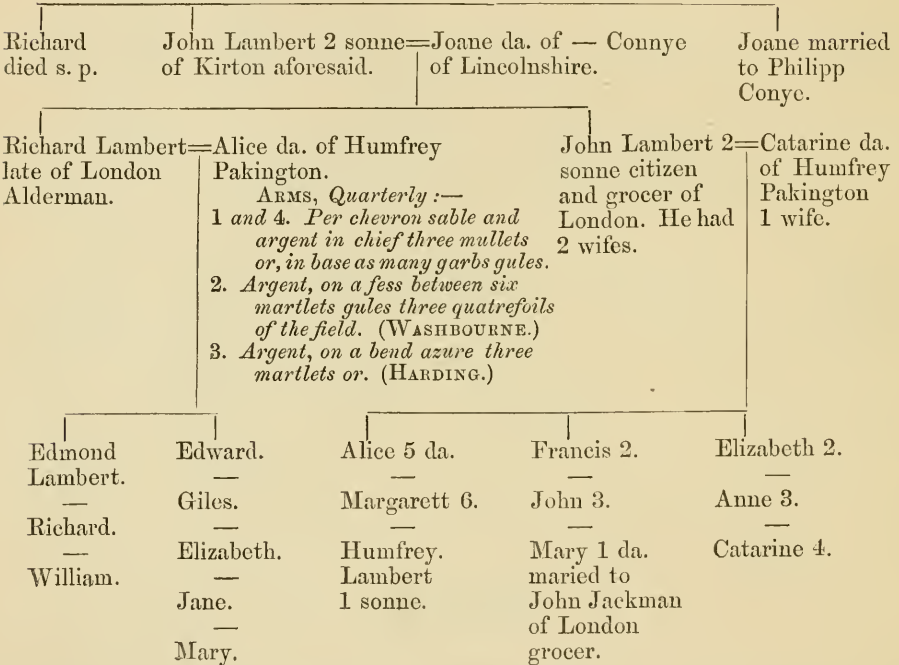 Richard
died s. p.
John Lambert 2 sonne=Joane da. of — Connye
of Kirton aforesaid.
of Lincolnshire.
Joane married
to Philipp
Conye.
Richard Lambert=Alice da. of Humfrey
late of London
Alderman.
Pakington.
ARMS, Quarterly :—
1 and 4. Per chevron sable and
argent in chief three mullets
or, in base as many garbs gules.
2. Argent, on a fess between six
martlets gules three quatrefoils
of the field. (WASHBOURNE.)
3. Argent, on a bend azure three
martlets or. (HARDING.)
John Lambert 2=Catarine da.
sonne citizen
and grocer of
London. He had
2 wifes.
of Humfrey
Pakington
1 wife.
Edmond
Lambert.
—
Richard.
—
William.
Edward.
—
Giles.
—
Elizabeth.
—
Jane.
—
Mary.
Alice 5 da.
—
Margarett 6.
—
Humfrey.
Lambert
1 sonne.
Francis 2.
—
John 3.
—
Mary 1 da.
maried to
John Jackman
of London
grocer.
Elizabeth 2.
—
Anne 3.
—
Catarine 4.